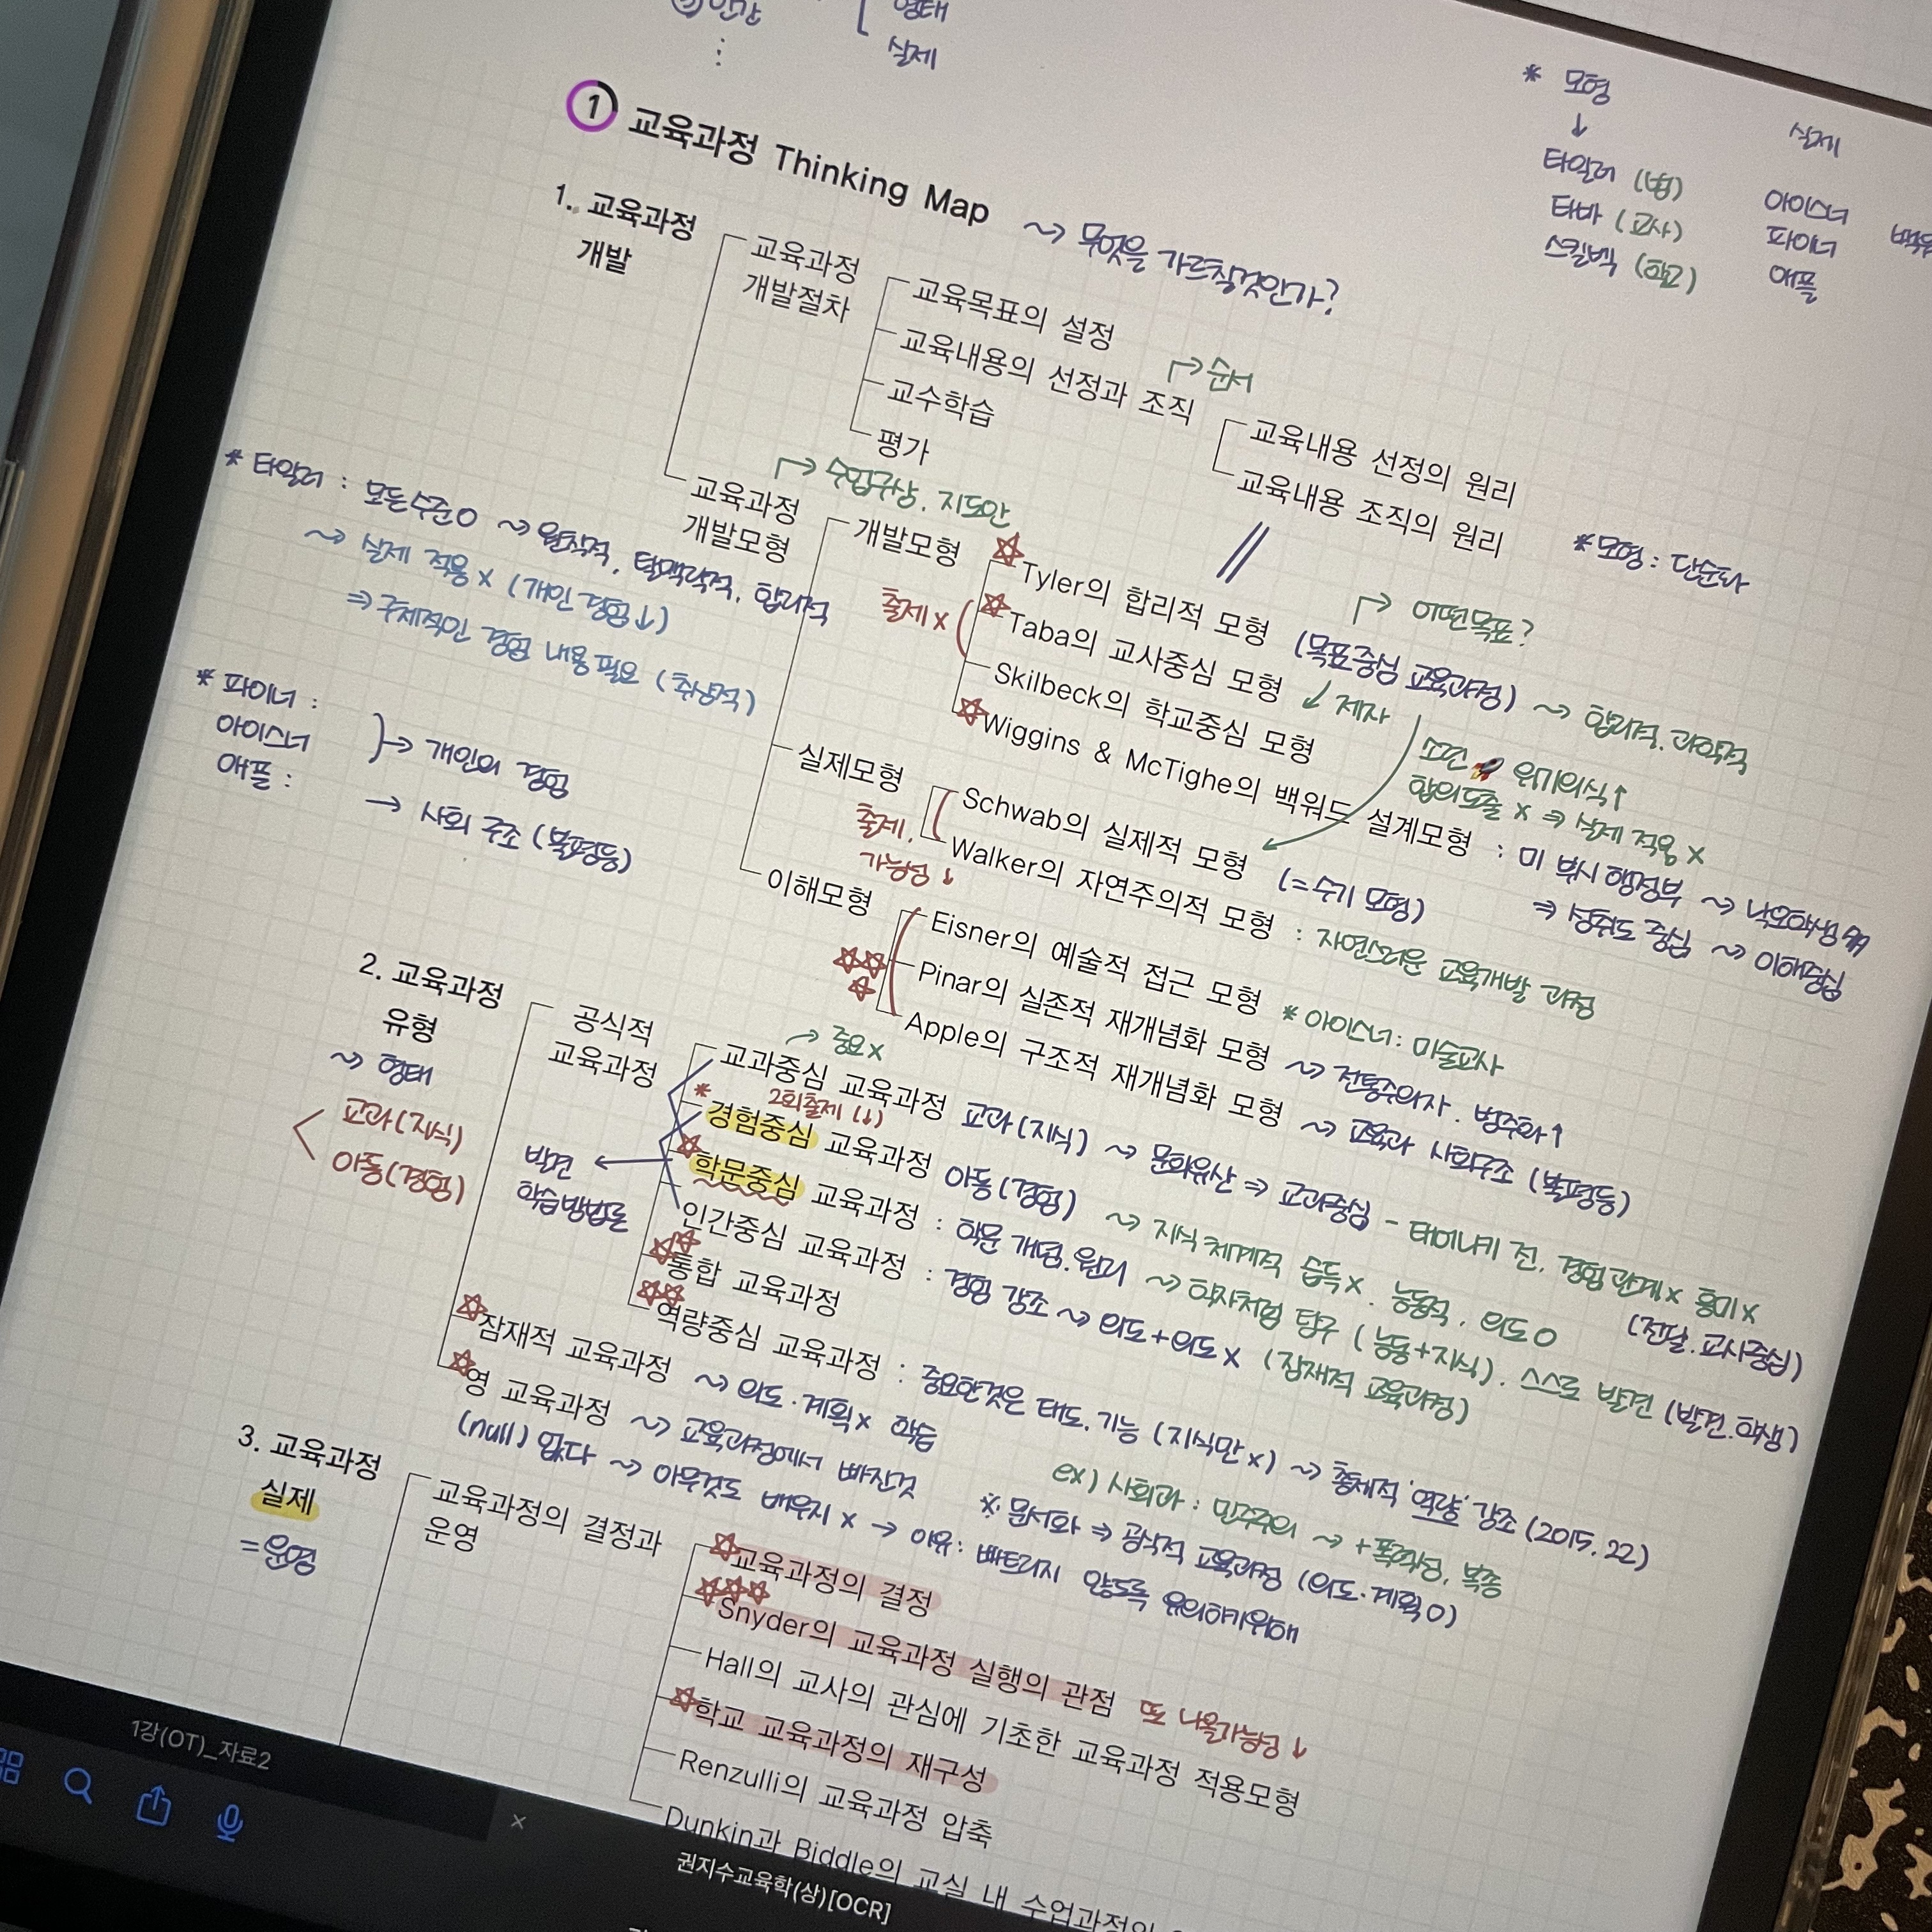 형태
실제
* 모형
↓
실제
타일러 (법)
타바 (교사)
스킬벡 (학교)
아이스너
파이너
애플
1 교육과정 Thinking Map ~> 무엇을 가르칠것인가?
1. 교육과정
개발
교육과정
개발절차
교육목표의 설정
교육내용의 선정과 조직
↱ 순서
교수학습
평가
교육내용 선정의 원리
교육내용 조직의 원리
교육과정
개발모형
↱ 수업구상, 지도안
개발모형
출제 x
☆ Tyler의 합리적 모형 (목표중심 교육과정) ~> 합리적, 과학적
↱ 어떤목표?
* 모형 : 단순화
☆ Taba의 교사중심 모형 ↙ 제자
Skilbeck의 학교중심 모형
소련 🚀 위기의식↑
합의도출 x ⇒ 실제 적용 x
☆ Wiggins & McTighe의 백워드 설계모형 : 미 부시 행정부 ~> 낙오학생
⇒ 성취도 중심 ~> 이해중심
* 타일러 : 모든수준O ~> 원칙적, 탈맥락적, 합리적
~> 실제 적용 x (개인 경험↓)
⇒ 구체적인 경험 내용 필요 (추상적)
* 파이너 :
아이스너
→ 개인의 경험
애플 : → 사회 구조 (불평등)
실제모형
출제,
가능성↓
Schwab의 실제적 모형 (=숙의 모형)
Walker의 자연주의적 모형 : 자연스러운 교육개발 과정
이해모형
☆☆
☆
Eisner의 예술적 접근 모형 * 아이스너: 미술교사
Pinar의 실존적 재개념화 모형 ~> 전통주의자. 범주화↑
Apple의 구조적 재개념화 모형 ~> 교육과 사회구조 (불평등)
2. 교육과정
유형
~> 형태
교과(지식)
아동(경험)
공식적
교육과정
→ 중요 x
교과중심 교육과정 교과(지식) ~> 문화유산 ⇒ 교과중심 - 태어나기 전. 경험 관계x 흥미x
(전달. 교사중심)
2회출제 (↓)
* 경험중심 교육과정 아동(경험) ~> 지식 체계적 습득x. 능동적. 의도O
☆ 학문중심 교육과정 : 학문 개념.원리 ~> 학자처럼 탐구 (능동+지식). 스스로 발견 (발견.학생)
발견
학습방법론
인간중심 교육과정 : 경험 강조 ~> 의도+의도x (잠재적 교육과정)
☆☆ 통합 교육과정
☆☆ 역량중심 교육과정 : 중요한것은 태도.기능 (지식만x) ~> 총체적 '역량' 강조 (2015. 22)
☆ 잠재적 교육과정 ~> 의도·계획x 학습
☆ 영 교육과정 ~> 교육과정에서 빠진것
(null) 없다 ~> 아무것도 배우지 x → 이유: 빠트리지 않도록 유의하기위해
ex) 사회과 : 민주주의 ~> +폭력성, 복종
※ 문서화 ⇒ 공식적 교육과정 (의도·계획O)
3. 교육과정
실제
=운영
교육과정의 결정과
운영
☆ 교육과정의 결정
☆☆☆ Snyder의 교육과정 실행의 관점 또 나올가능성↓
Hall의 교사의 관심에 기초한 교육과정 적용모형
☆ 학교 교육과정의 재구성
Renzulli의 교육과정 압축
Dunkin과 Biddle의 교실 내 수업과정의
1강(OT)_자료2
×
권지수교육학(상)[OCR]